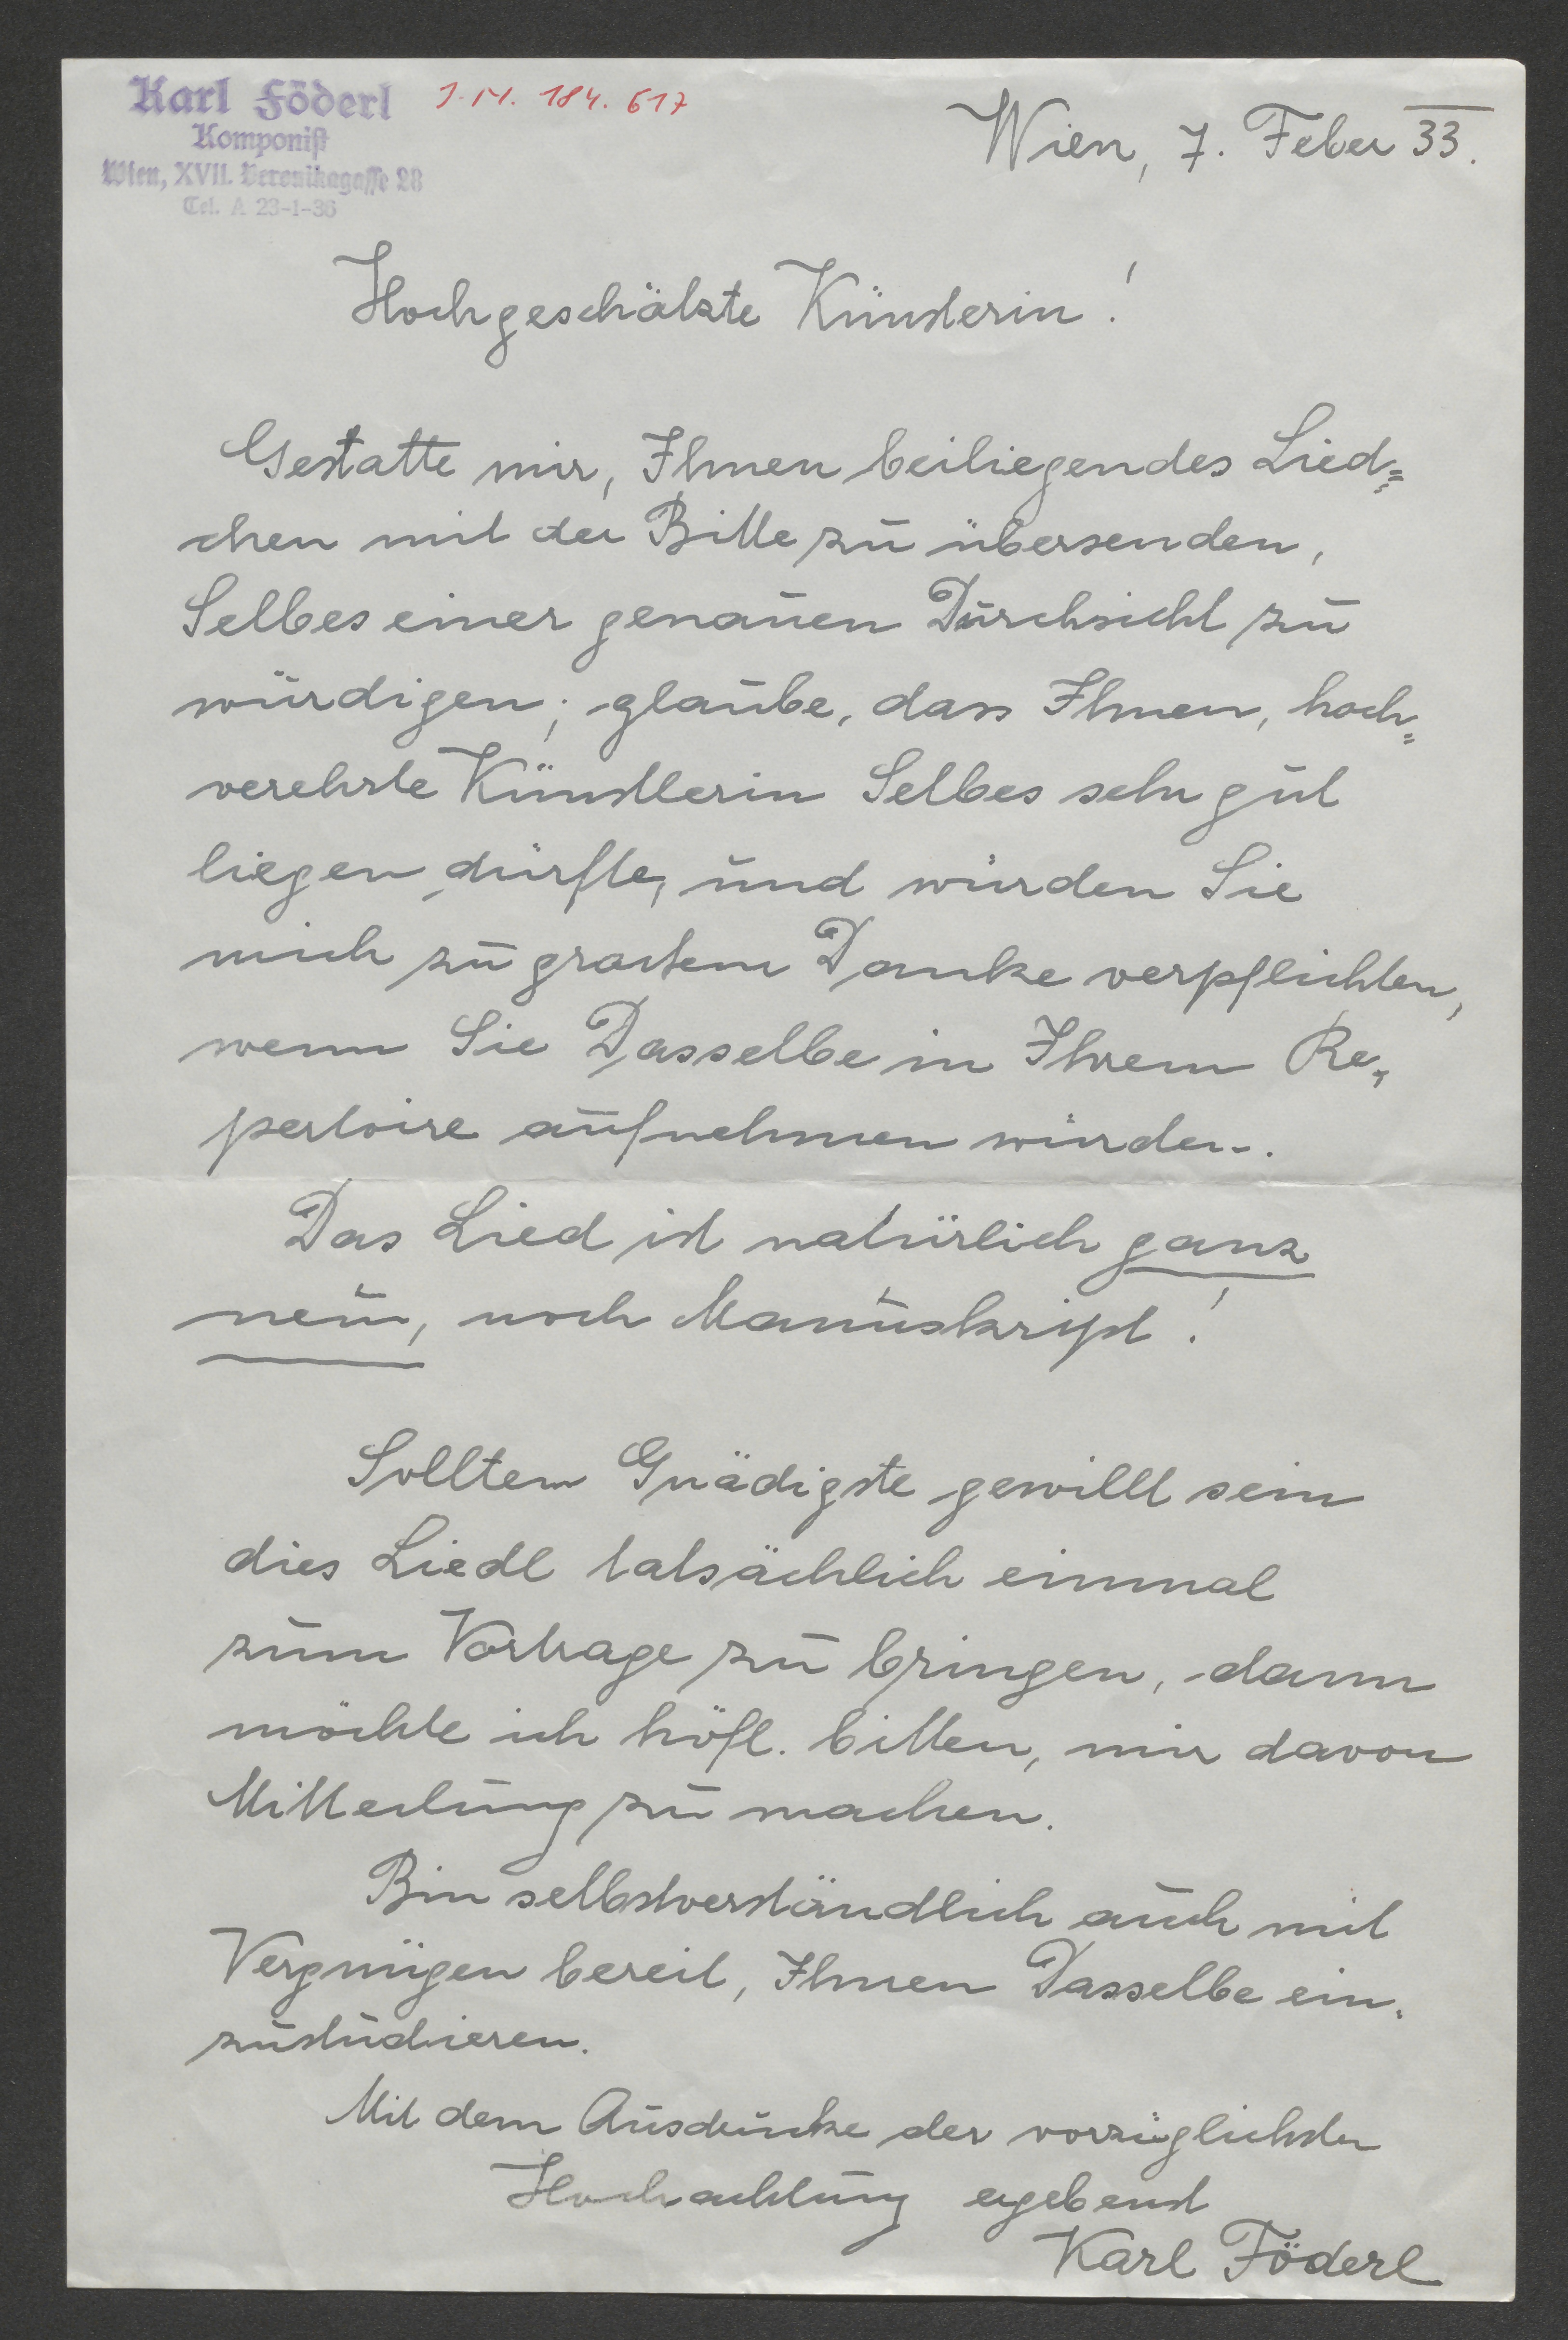 Karl Föderl
Komponist
Wien, XVII. Veronikagasse 28
Tel. A 23-1-36
J.N. 184.617
Wien, 7. Feber 33.
Hochgeschätzte Künstlerin!
Gestatte mir, Ihnen beiliegendes Lied=
chen mit der Bitte zu übersenden,
Selbes einer genauen Durchsicht zu
würdigen; glaube, dass Ihnen, hoch=
verehrte Künstlerin Selbes sehr gut
liegen dürfte, und würden Sie
mich zu grossem Danke verpflichten,
wenn Sie Dasselbe in Ihrem Re=
pertoire aufnehmen würden.
Das Lied ist natürlich ganz
neu, noch Manuskript!
Sollten Gnädigste gewillt sein
dies Liedl tatsächlich einmal
zum Vortrage zu bringen, dann
möchte ich höfl. bitten, mir davon
Mitteilung zu machen.
Bin selbstverständlich auch mit
Vergnügen bereit, Ihnen Dasselbe ein=
zustudieren.
Mit dem Ausdrucke der vorzüglichsten
Hochachtung ergebenst
Karl Föderl